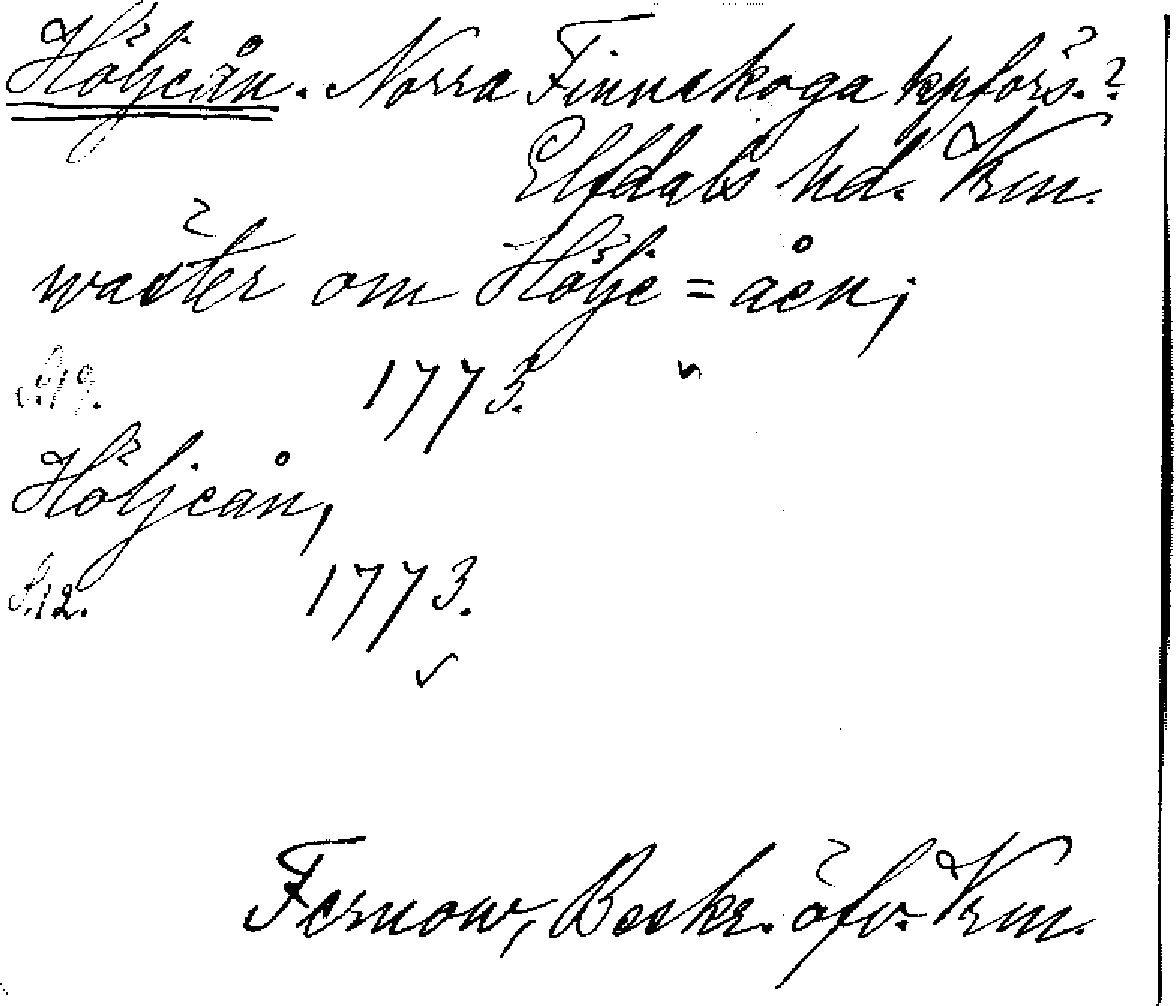 Höljeån. Norra Finnskoga kpförs.?
Elfdals hd. Vrm.
wäster om Hölje=åen;
S. 19. 1773.
Höljeån,
S. 12. 1773.
Fernow, Beskr. öfv. Vrm.